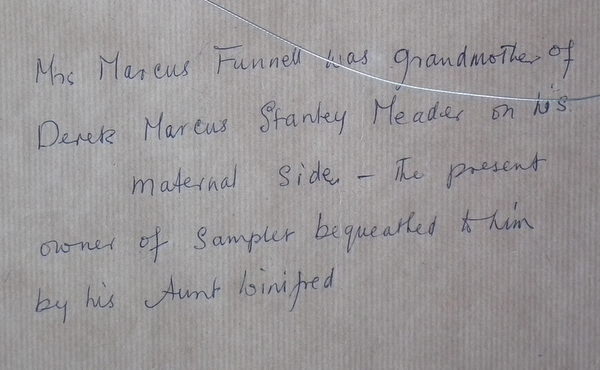 Mrs Marcus Funnell was grandmother of
Derek Marcus Stanley Meader on his
maternal side – The present
owner of Sampler bequeathed to him
by his Aunt Winifred